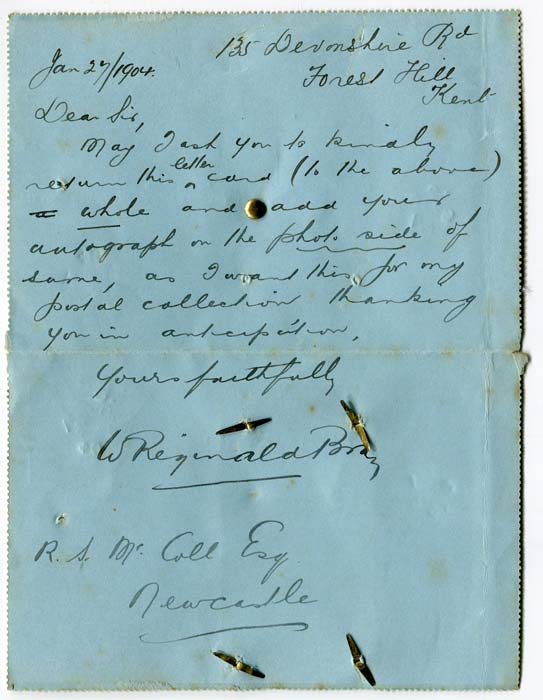 135 Devonshire Rd
Jan 27/1904.
Forest Hill
Kent
Dear Sir,
May I ask you to kindly
return this letter card (to the above)
a whole and add your
autograph on the photo side of
same, as I want this for my
postal collection thanking
you in anticipation,
Yours faithfully
W Reginald Bray
R. S. Mc Coll Esq
Newcastle